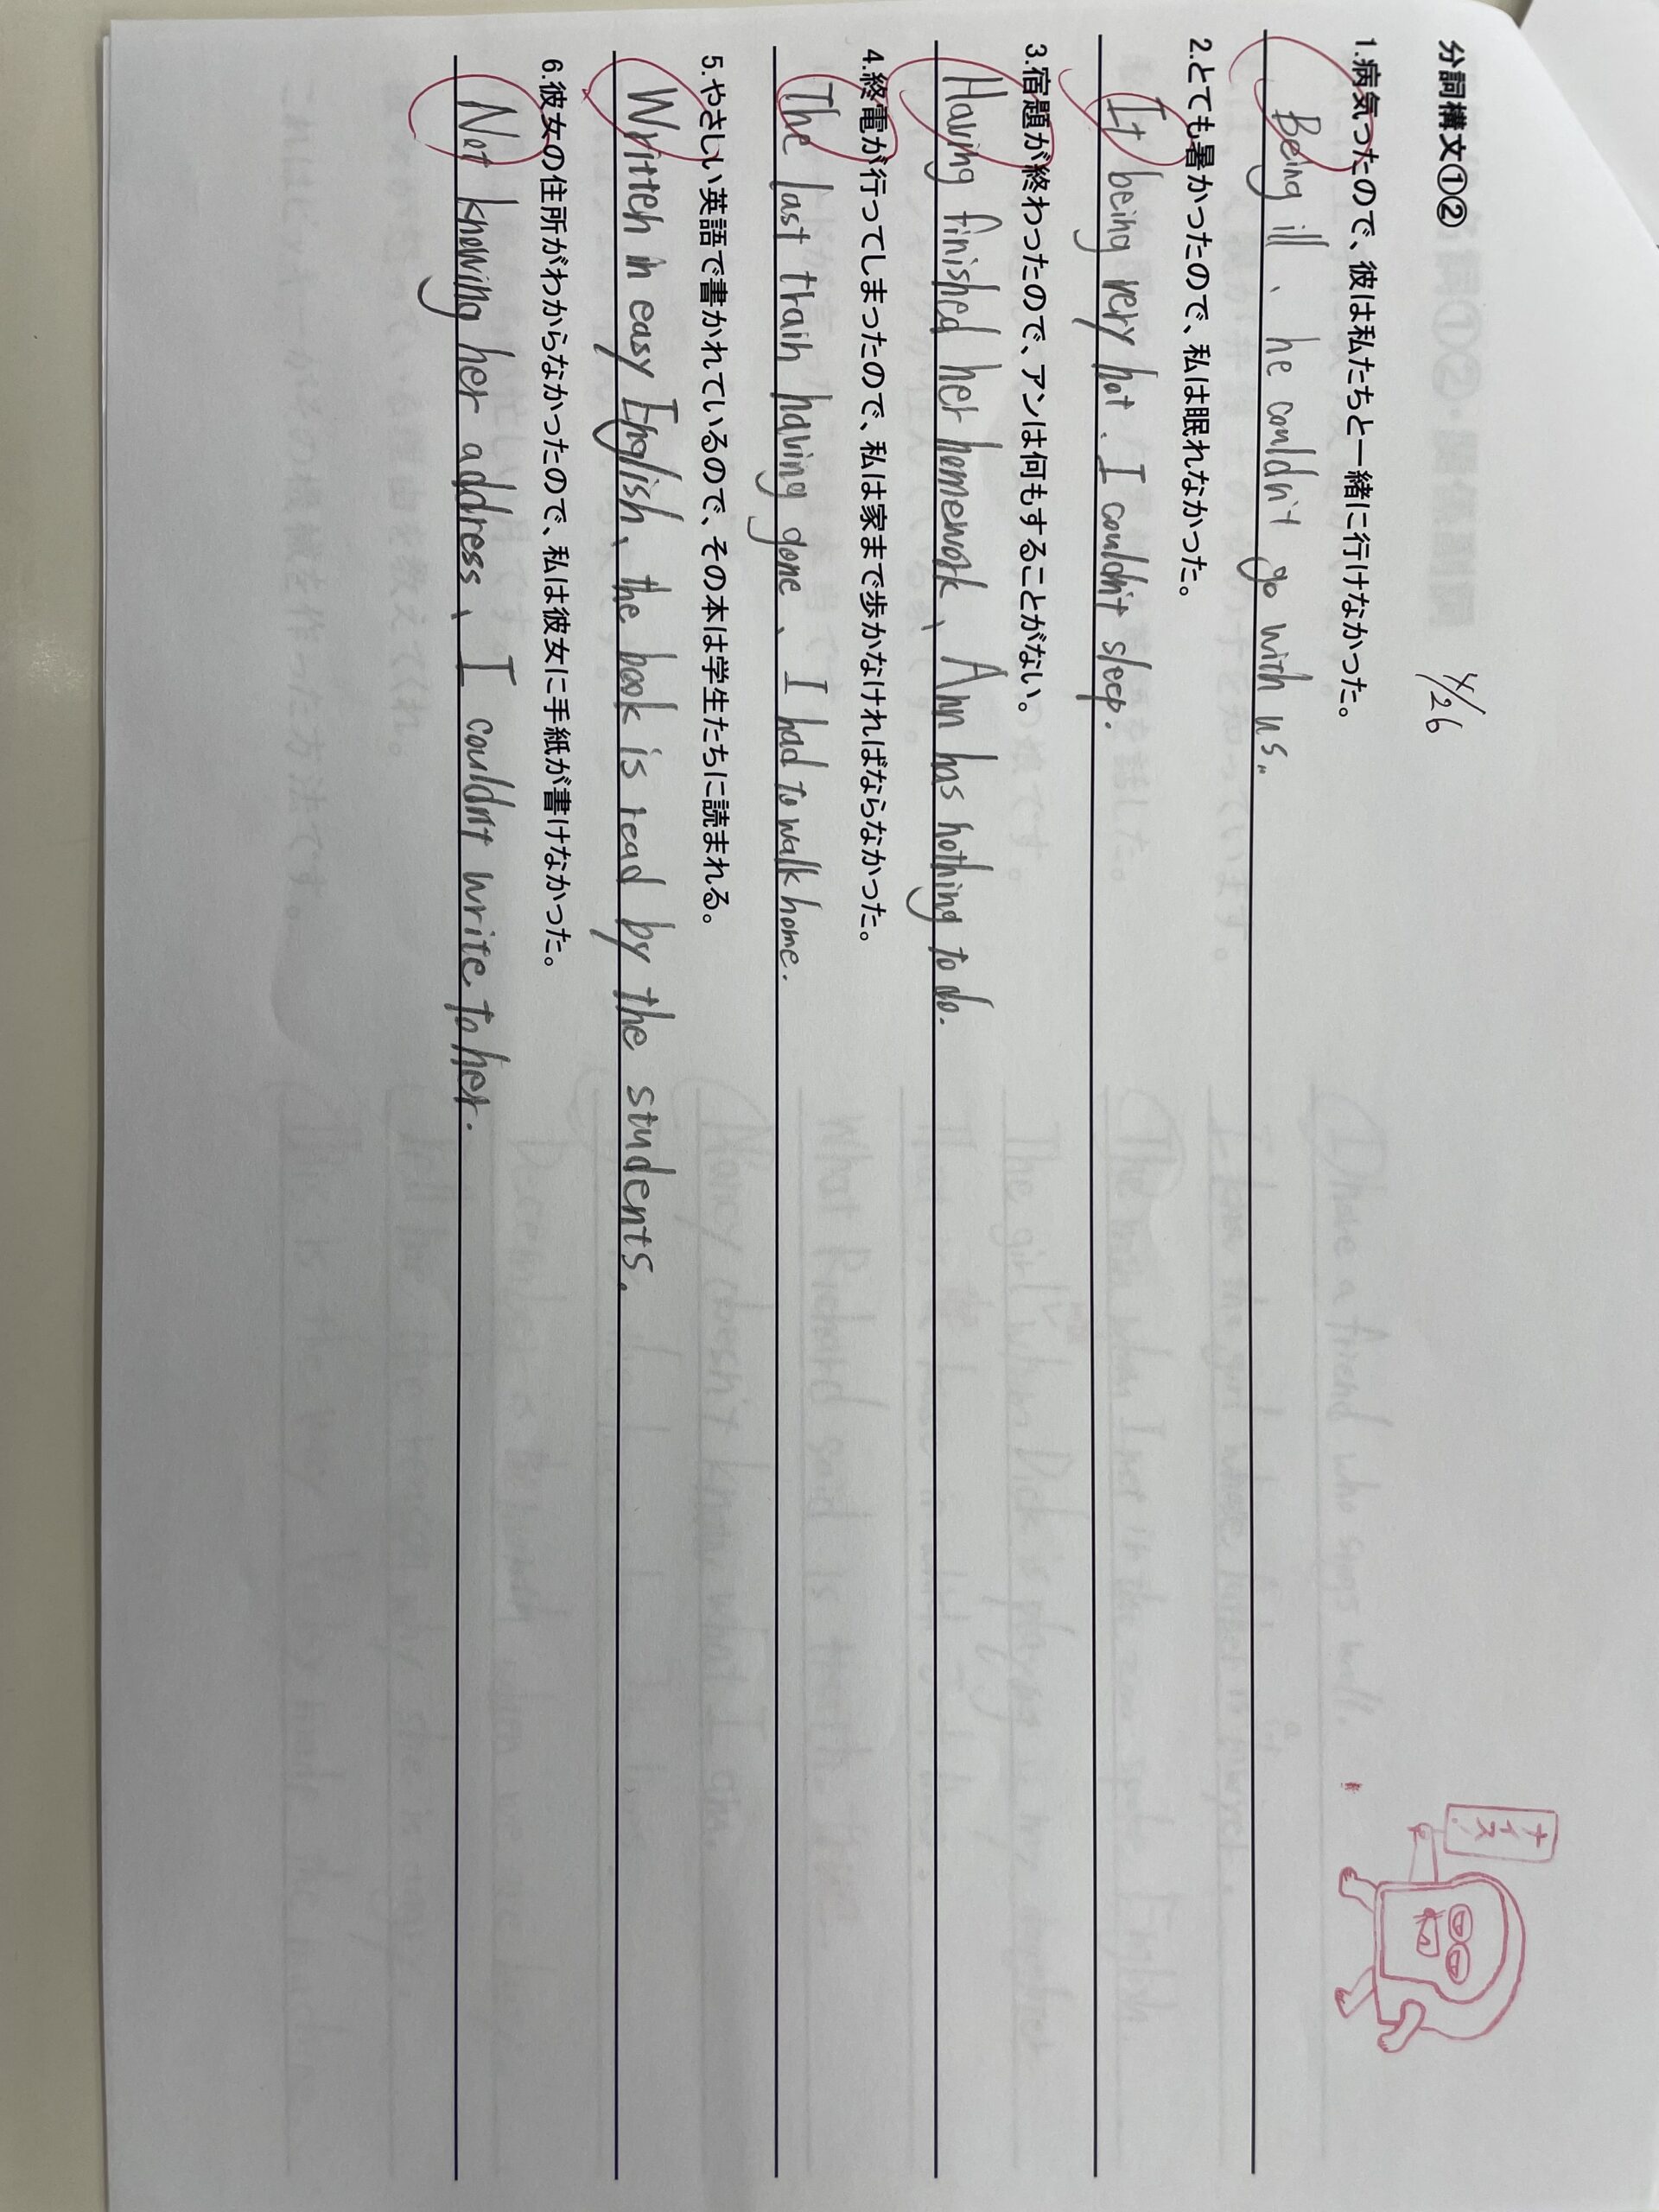 分詞構文①②
4/26
ナイス!
1.病気ったので、彼は私たちと一緒に行けなかった。
Being ill、he couldn't go with us.
2.とても暑かったので、私は眠れなかった。
It being very hot. I couldn't sleep.
3.宿題が終わったので、アンは何もすることがない。
Having finished her homework、Ann has nothing to do.
4.終電が行ってしまったので、私は家まで歩かなければならなかった。
The last train having gone、I had to walk home.
5.やさしい英語で書かれているので、その本は学生たちに読まれる。
Written in easy English、the book is read by the students.
6.彼女の住所がわからなかったので、私は彼女に手紙が書けなかった。
Not knowing her address、I couldn't write to her.